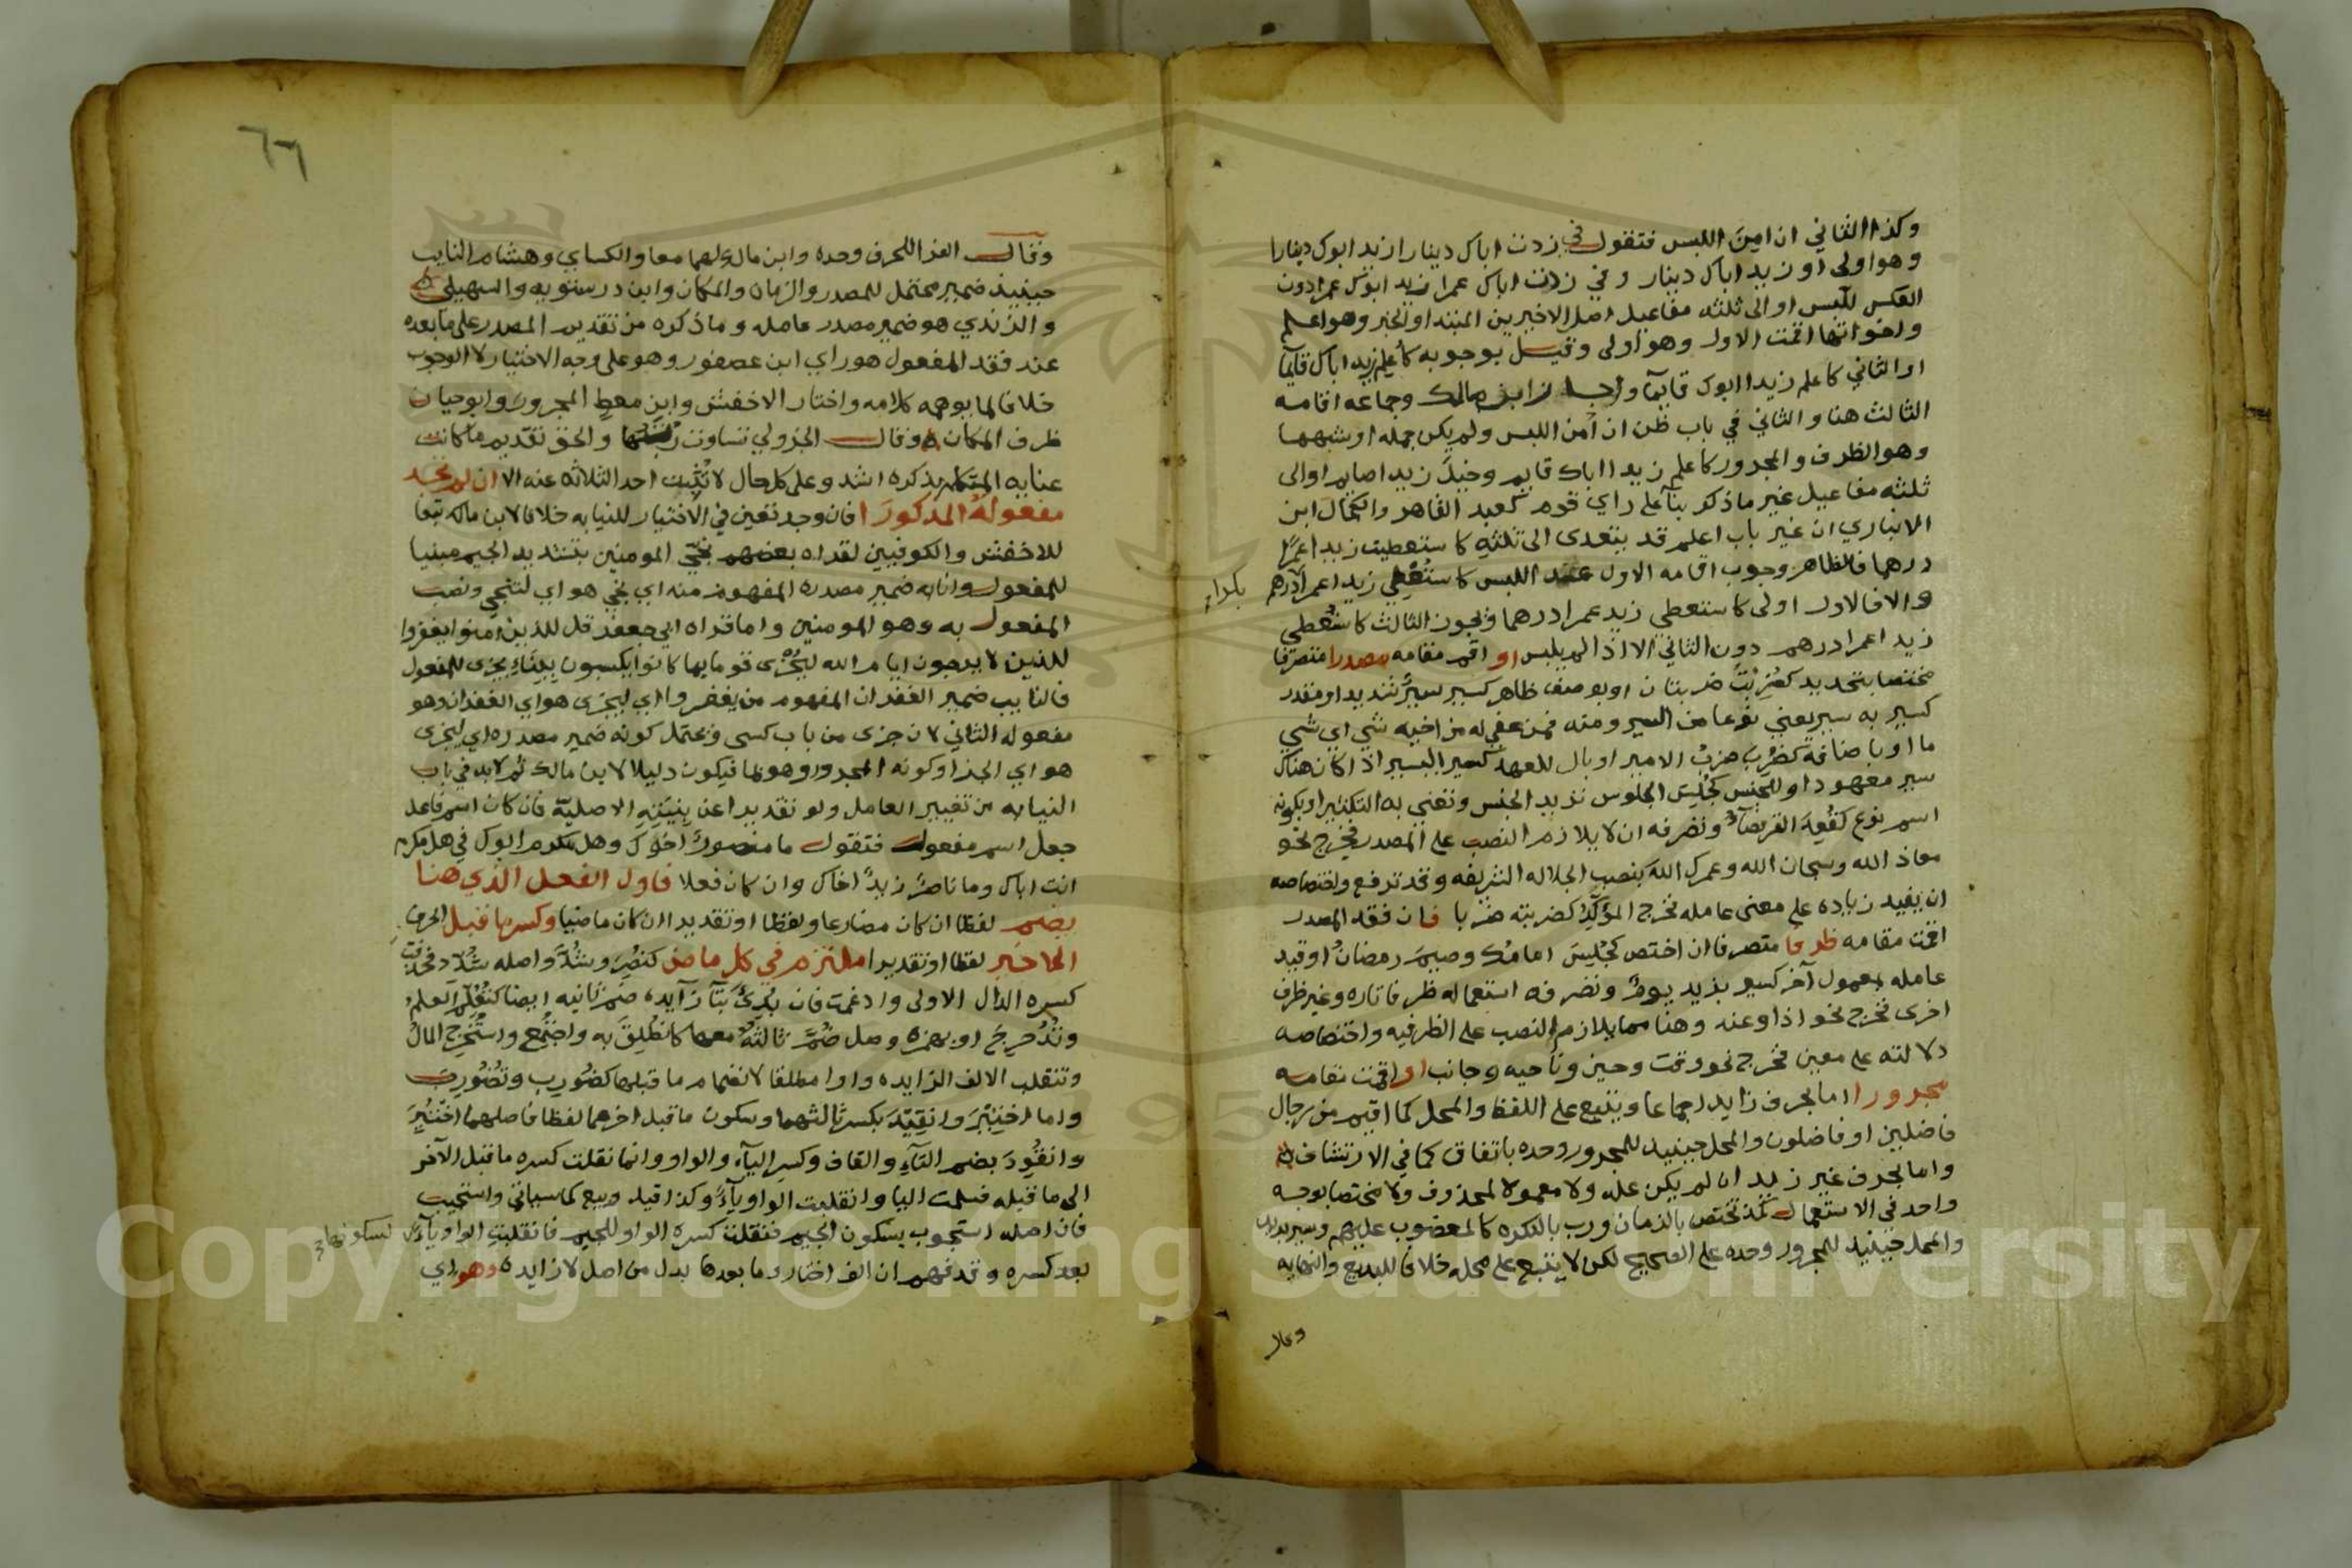 وكذا الثاني ان امن اللبس فتقول في زدت اباك دينارا زيد ابوك دينارا
وهو اولى او زيد اباك دينار وفي زدت اباك عمرا زيد ابوك عمرا دون
العكس للبس او الى ثلثه مفاعيل اصل الاخيرين المبتدا والخبر وهو اعلم
واخواتها اقمت الاول وهو اولى وقيل بوجوبه كاُعلم زيد اباك قائما
او الثاني كاعلم زيدا ابوك قايما واجاز ابن مالك وجماعه اقامه
الثالث هنا والثاني في باب ظن ان اُمن اللبس ولم يكن جمله او شبهها
وهو الظرف والمجرور كاعلم زيدا اباك قايم وخيل زيدا صايم او الى
ثلثه مفاعيل غير ماذكر بنآ على راي قوم كعبد القاهر والكمال ابن
الانباري ان غير باب اعلم قد يتعدى الى ثلثه كاستعطيت زيدا عمرًا
درهما فالظاهر وجوب اقامه الاول عند اللبس كاستُعطِي زيد اعمرا درهم
والا فالاول اولى كاستعطي زيد عمرا درهما ويجوز الثالث كاستُعطي
زيد اعمرا درهم دون الثاني الا اذا لم يلبس او اقم مقامه مصدرا متصرفا
مختصا بتحديد كضُرِبَت ضربتان او بوصف ظاهر كسير سيرٌ شديد او مقدر
كسير به سير يعني نوعا من السير ومنه فمن عفي له من اخيه شي اي شي
ما او باضافة كضُرِب ضربُ الامير او بال للعهد كسير السير اذا كان هناك
سير معهود او للجنس كجُلِس الجلوس تريد الجنس وتعني به التكثير او بكونه
اسم نوع كقُعِدَ القرفصآ وتصرفه ان لا يلازم النصب على المصدر فيخرج نحو
معاذ الله وسبحان الله وعمرك الله بنصب الجلاله الشريفه وقد ترفع واختصاصه
ان يفيد زياده على معنى عامله فخرج المؤكّد كضربته ضربا فان فقد المصدر
اقمت مقامه ظرفا متصرفا ان اختص كجُلِسَ امامُك وصيمَ رمضانُ او قيد
عامله بمعمول آخر كسير بزيد يومٌ وتصرفه استعماله ظرفا تاره وغير ظرف
اخرى فخرج نحو اذا وعند وهنا مما يلازم النصب على الظرفيه واختصاصه
دلالته على معين فخرج نحو وقت وحين وناحيه وجانب او اقمت مقامه
مجرورا اما بحرف زايد اجماعا ويتبع على اللفظ والمحل كما اقيم من رجال
فاضلين او فاضلون والمحل حينيد للمجرور وحده باتفاق كما في الارتشاف
واما بحرف غير زايد ان لم يكن عله ولا معمولا لمحذوف ولا مختصا بوجه
واحد في الاستعمال كمذ تختص بالزمان ورب بالنكره كالمغضوب عليهم وسير بزيد
والمحل حينيد للمجرور وحده على الصحيح لكن لا يتبع على محله خلافا للبديع والنهايه
وقال
٦٦
وقال الفرا للحرف وحده وابن مالك لهما معا والكسايي وهشام النايب
حينيد ضمير محتمل للمصدر والزمان والمكان وابن درستويه والسهيلي
والرندي هو ضمير مصدر عامله وما ذكره من تقديم المصدر على ما بعده
عند فقد المفعول هو راي ابن عصفور وهو على وجه الاختيار لا الوجوب
خلافا لما يوهمه كلامه واختار الاخفش وابن معطٍ المجرور وابو حيان
ظرف المكان وقال الجزولي تساوت رتبتها والحق تقديم ما كانت
عنايه المتكلم بذكره اشد وعلى كل حال لا تُنِيب احد الثلاثه عنه الا ان لم تجد
مفعوله المذكورَا فان وجد تعين في الاختيار للنيابه خلافا لابن مالك تبعا
للاخفش والكوفيين لقراه بعضهم نجّي المومنين بتشديد الجيم مبنيا
للمفعول وانابه ضمير مصدره المفهوم منه اي نجي هو اي لتنجي ونصب
المفعول به وهو المومنين واما قراه ابي جعفر قل للذين امنوا يغفروا
للذين لا يرجون ايام الله ليُجْزَى قوما بما كانوا يكسبون ببناء يجزى للمفعول
فالنايب ضمير الغفران المفهوم من يغفروا اي ليجزى هو اي الغفران وهو
مفعوله الثاني لان جزى من باب كسى ويحتمل كونه ضمير مصدره اي ليجزى
هو اي الجزا وكونه المجرور وهو بما فيكون دليلا لابن مالك ثم لا بد في باب
النيابه من تغيير العامل ولو تقديرا عن بِنيَتِهِ الاصليّة فان كان اسم فاعل
جعل اسم مفعول فتقول ما منصورٌ اخوك وهل مكرم ابوك في هل مكرم
انت اباك وما ناصرٌ زيدٌ اخاك وان كان فعلا فاول الفعل الذي هنا
يضم لفظا ان كان مضارعا ولفظا او تقديرا ان كان ماضيا وكسر ما قبل الحرف
الاخير لفظا او تقديرا ملتزم في كل ماض كنصُِرَ وشُدَّ واصله شُدِد فحذفت
كسره الدال الاولى وادغمت فان بُدِئَ بتآ زآيده ضم ثانيه ايضا كتُعُلِّمَ العلمُ
وتُدُحرِجَ او بهمزه وصل ضُمَّ ثالثُهُ معها كانطُلِقَ به واجتُمِع واستُخرِج المالُ
وتنقلب الالف الزايده واوا مطلقا لانضمام ما قبلها كضُورِب وتُضُورِب
واما اختِيرَ وانقِيدَ بكسر ثالثهما وسكون ما قبل اخرهما لفظا فاصلهما اختُيِرَ
وانقُوِدَ بضم التآءِ والقاف وكسر اليآء والواو وانما نقلت كسره ما قبل الآخر
الى ما قبله فسلمت اليا وانقلبت الواو يآءً وكذا قيل وبيع كما سياتي واستجيب
فان اصله استجوب بسكون الجيم فنقلت كسره الواو للجيم فانقلبت الواو يآءً لسكونها
بعد كسره وقد فهم ان الف اختار وما بعدها بدل من اصل لا زايده وهو اي